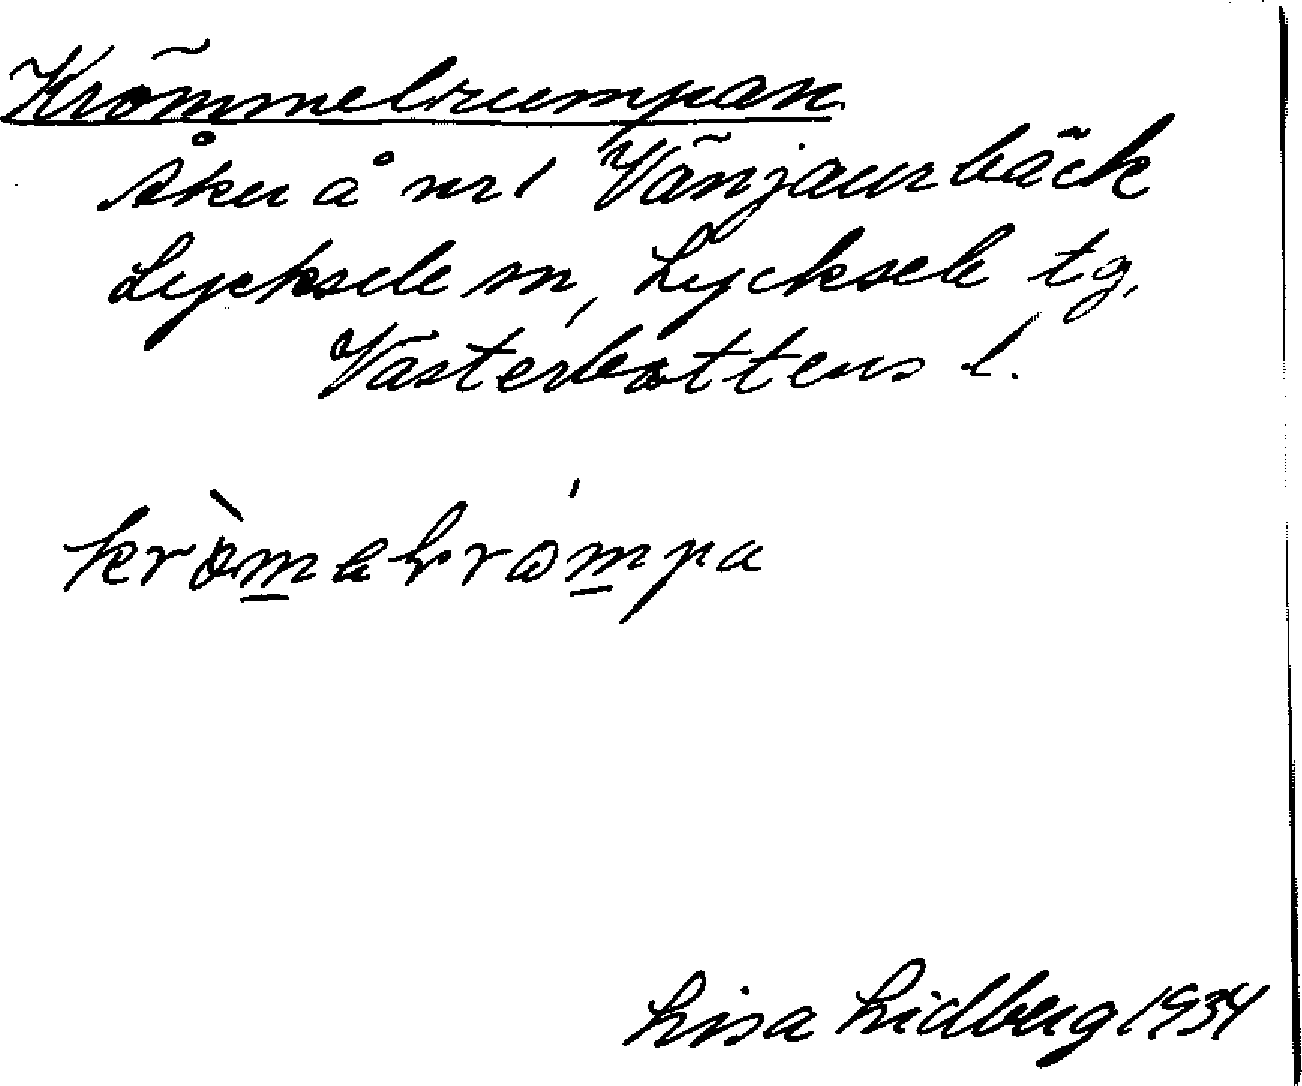 Krömmelrumpan
åker å nr 1 Vänjaurbäck
Lycksele sn, Lycksele tg,
Västerbottens l.
kròmelrómpa
Lisa Lidberg 1934